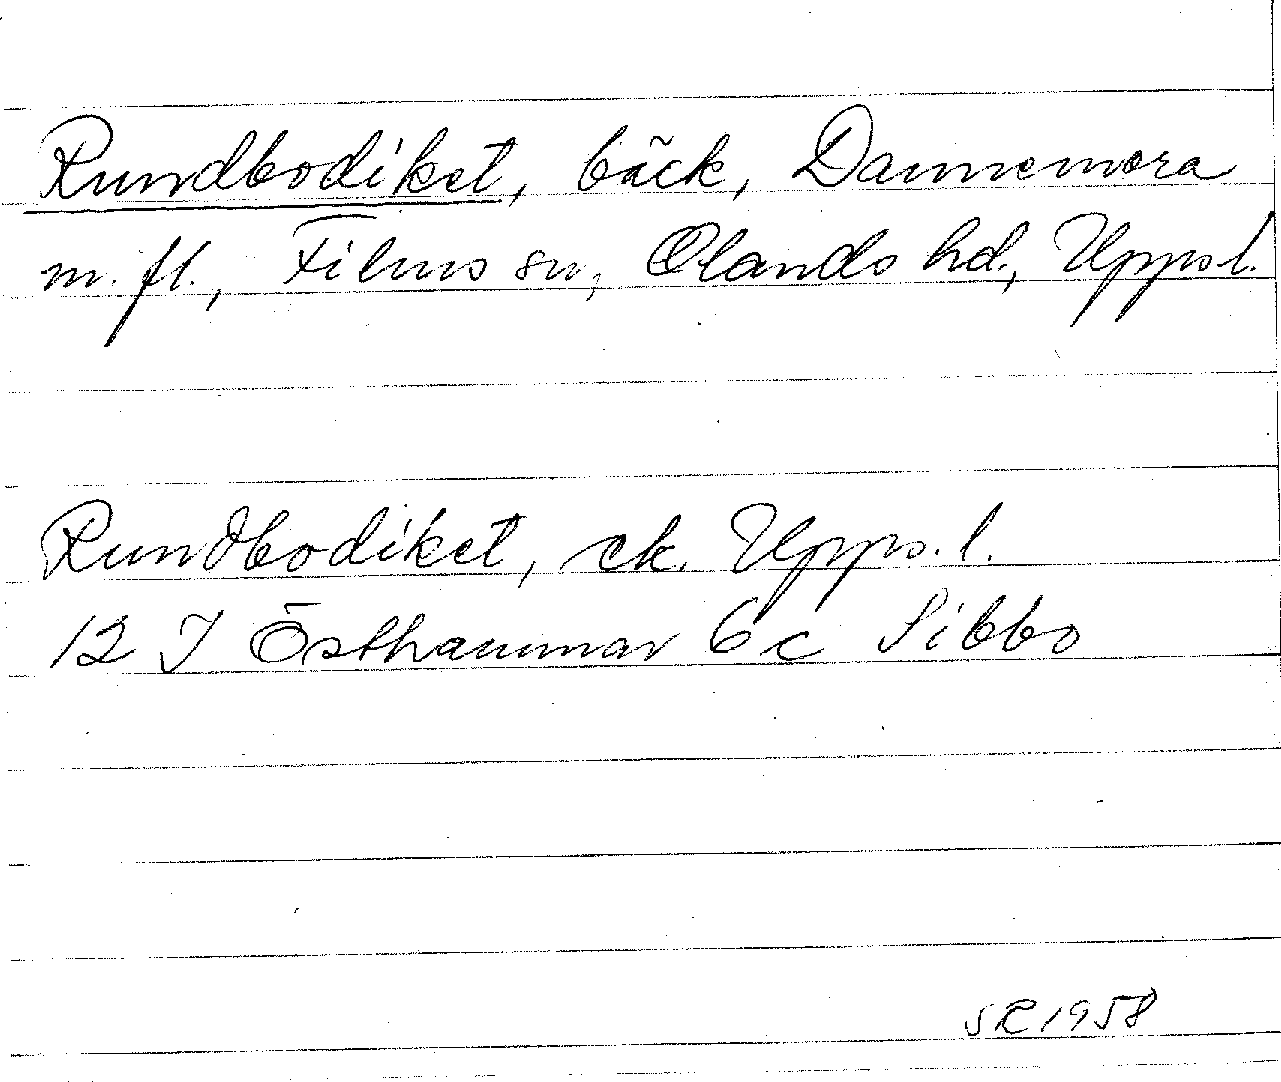 Rundbodiket, bäck, Dannemora
m. fl., Films sn, Olands hd., Upps. l.
Rundbodiket, ek. Upps. l.
12 I Östhammar 6 c Sibbo
SR 1958